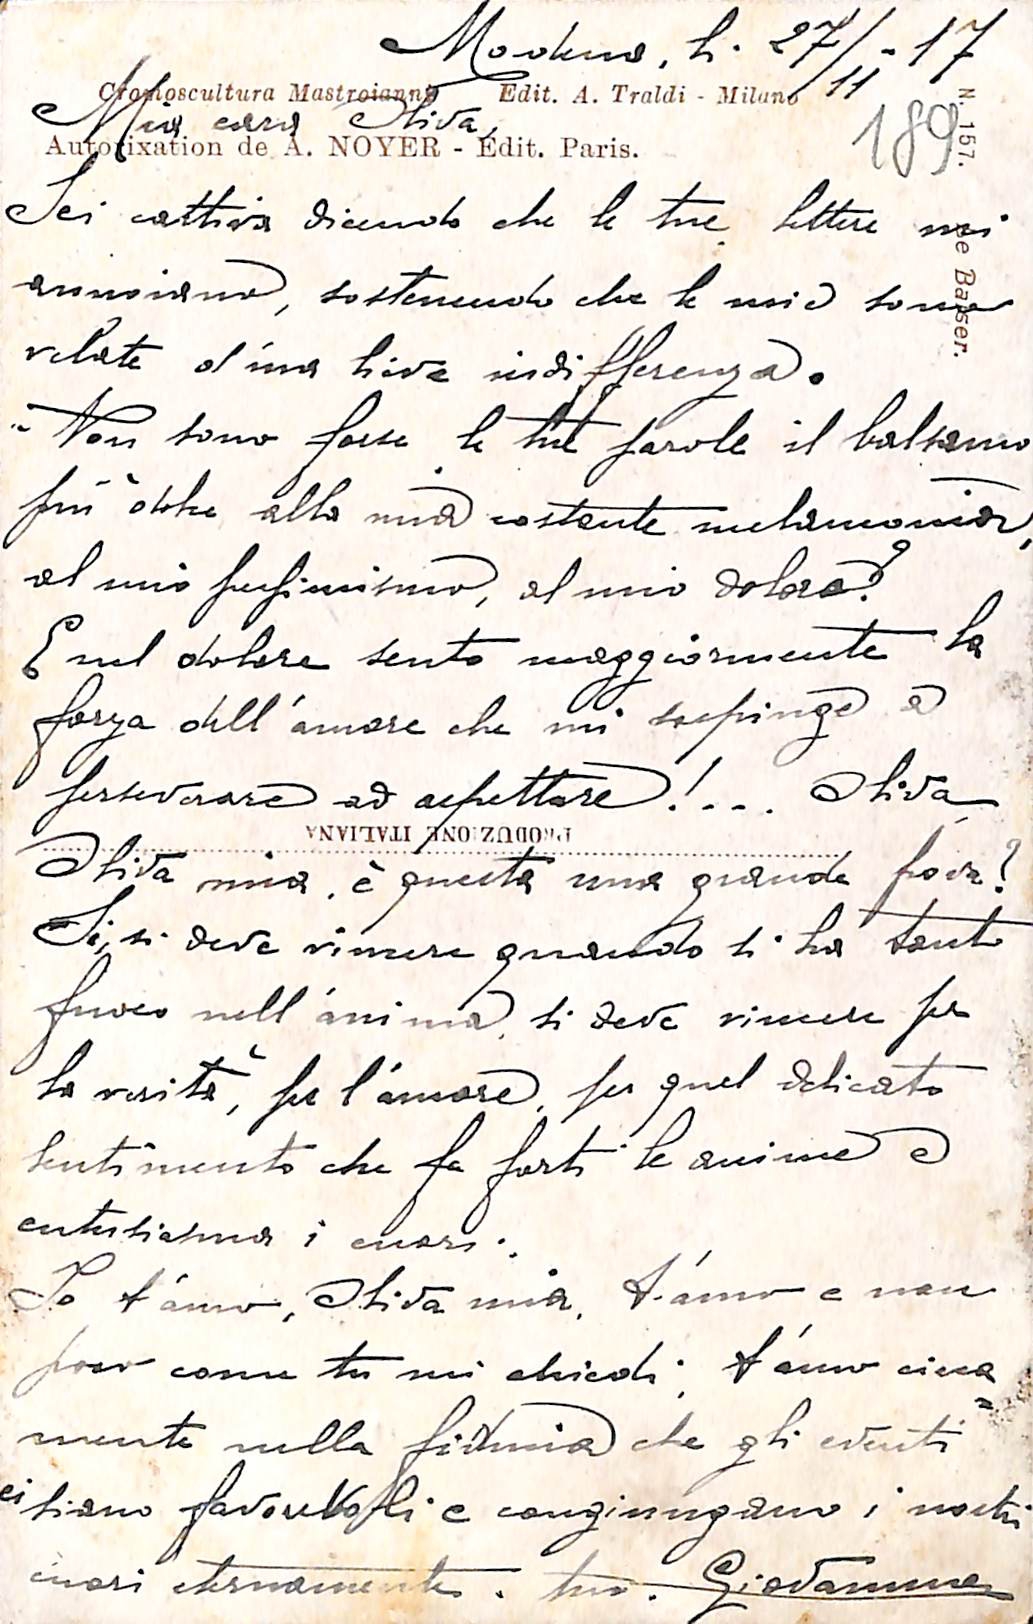 Modena, li. 27/11 - 17
Cromoscultura Mastroianni Edit. A. Traldi - Milano
N. 157.
189
Mia cara Oliva,
Autorixation de A. NOYER - Edit. Paris.
Sei cattiva dicendo che le tue lettere mi
annoiano, sostenendo che le mie sono
velate d'una lieve indifferenza.
Non sono forse le tue parole il balsamo
più dolce alla mia costante melanconia,
al mio pessimismo, al mio dolore?
E nel dolore sento maggiormente la
forza dell'amore che mi sospinge a
perseverare ad aspettare!... Oliva
PRODUZIONE ITALIANA
Oliva mia, è questa una grande prova?
Sì, si deve vincere quando si ha tanto
fuoco nell'anima, si deve vincere per
la verità, per l'amore, per quel delicato
sentimento che fa forti le anime e
entusiasma i cuori.
Io t'amo, Oliva mia, t'amo e non
poco come tu mi chiedi, t'amo cieca=
mente nella fiducia che gli eventi
ci siano favorevoli e congiungano i nostri
cuori eternamente. tuo. Giovannino